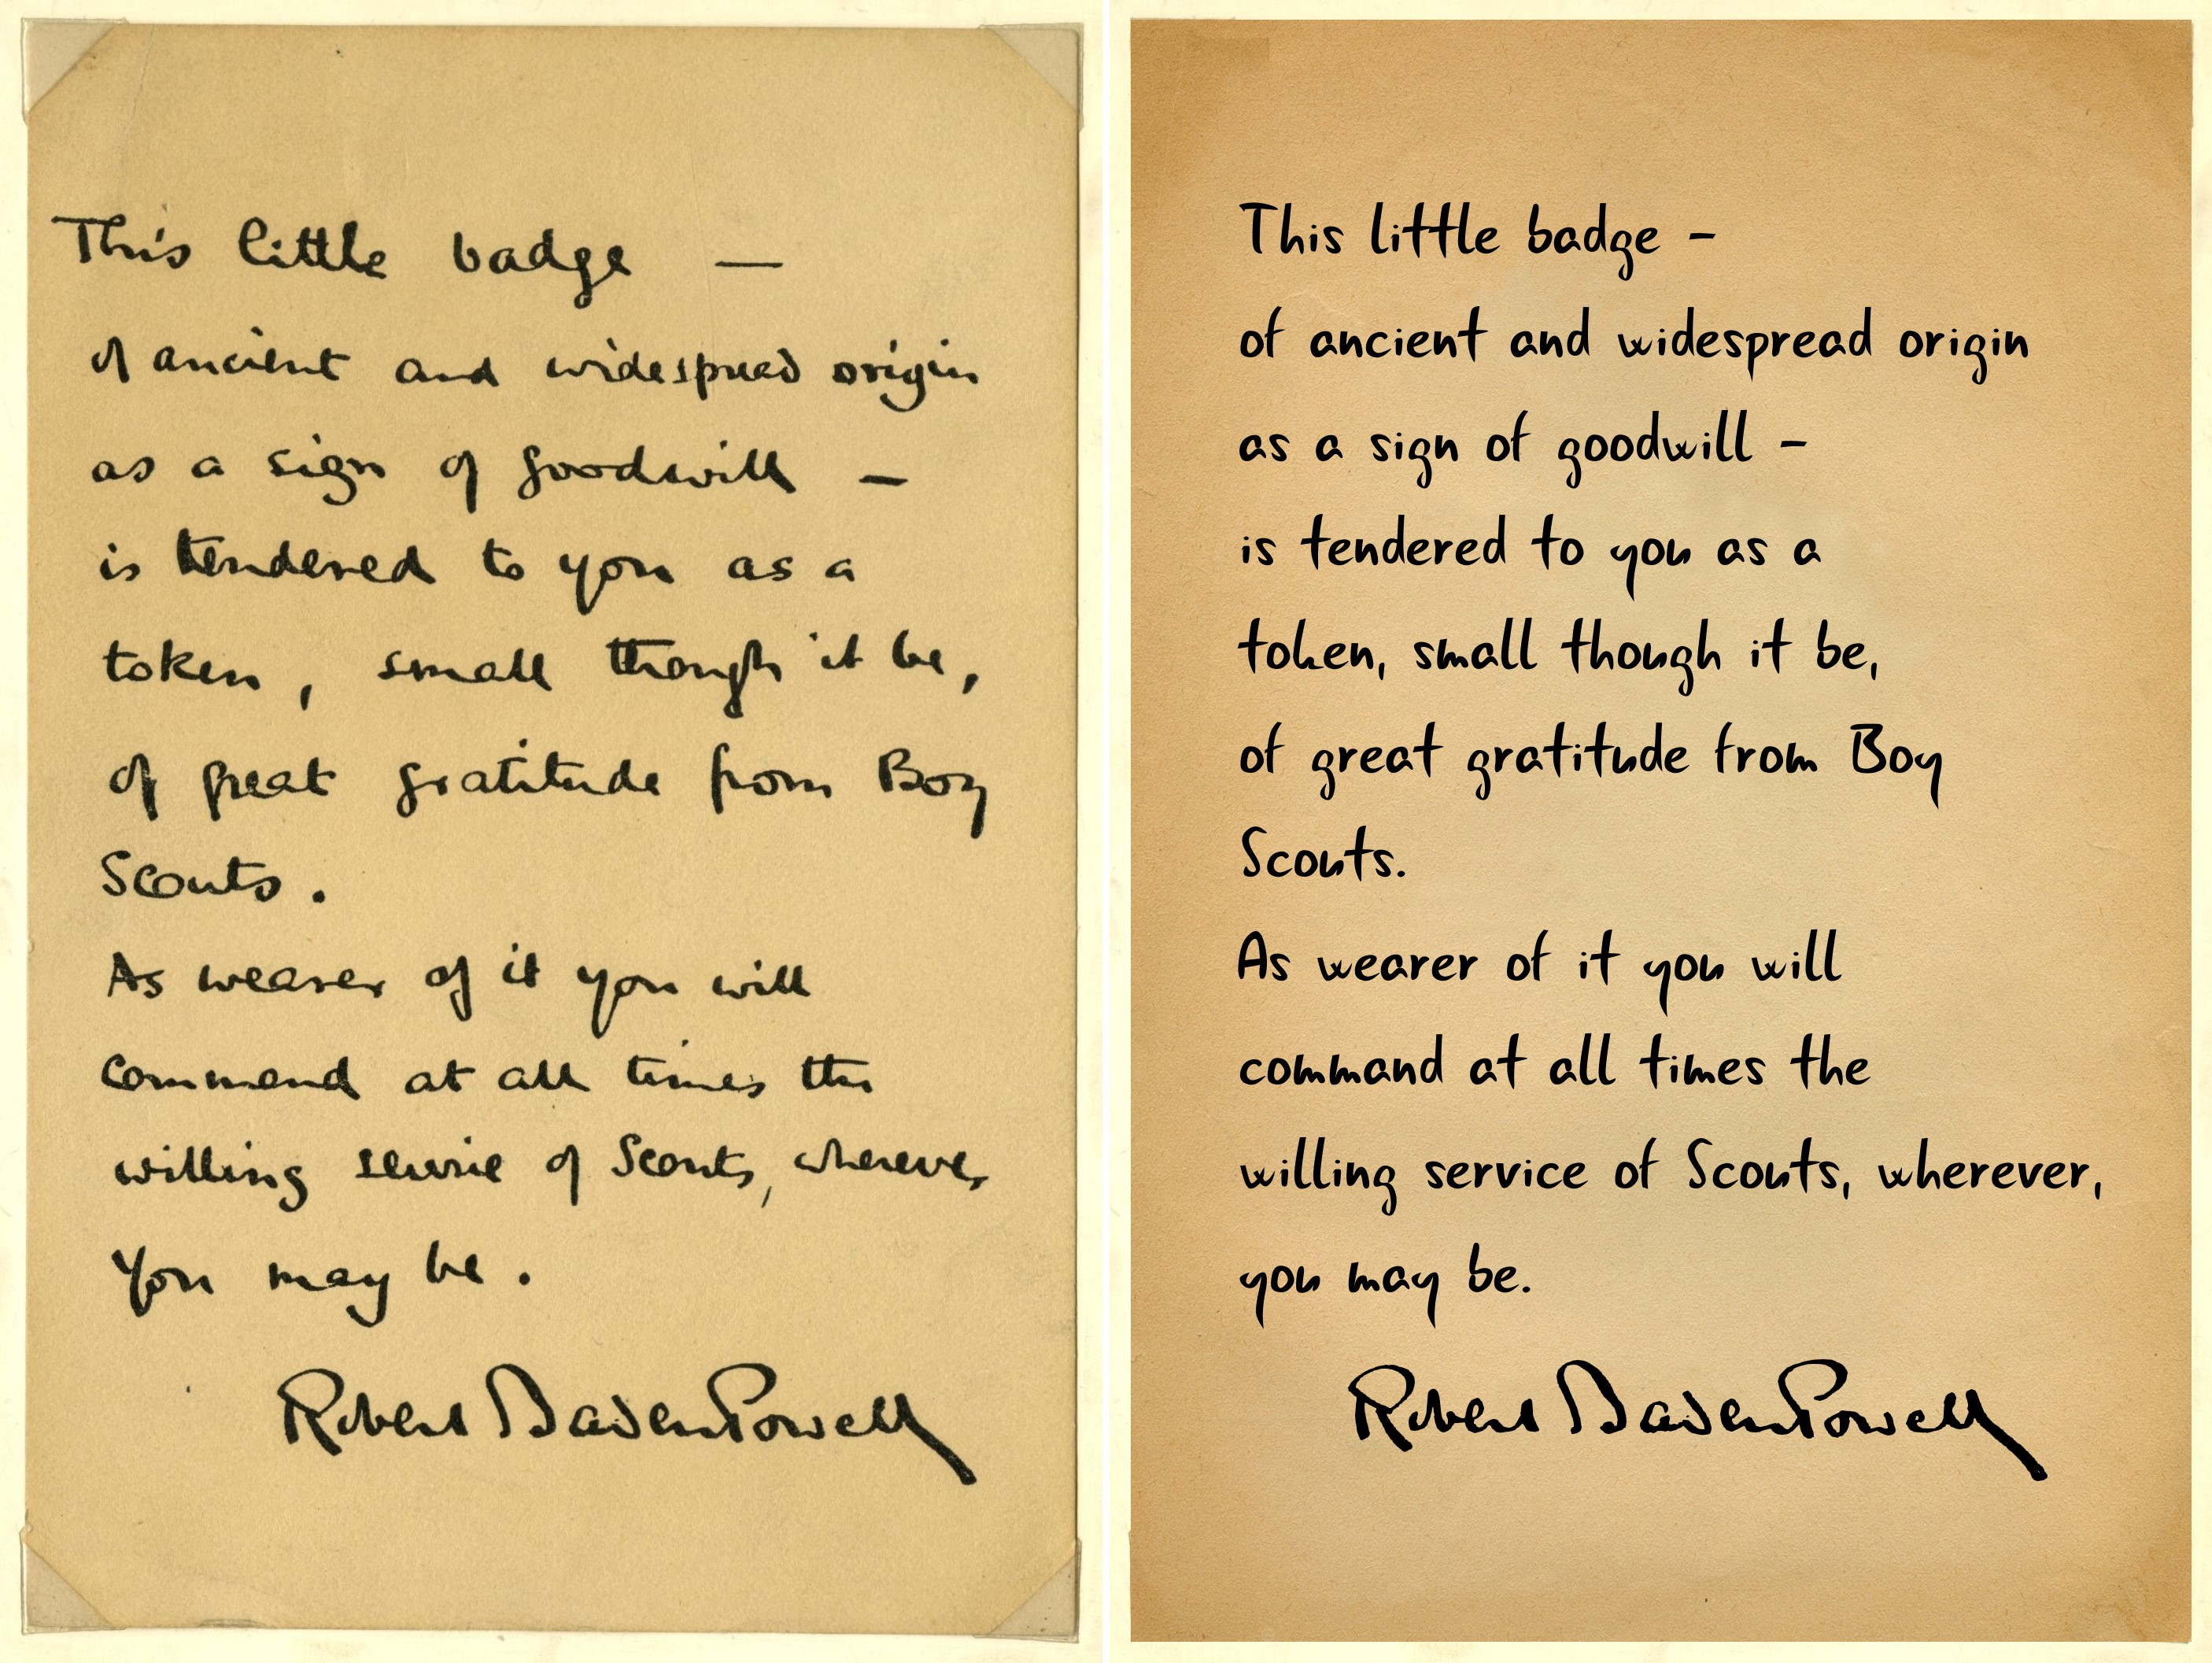 This little badge —
of ancient and widespread origin
as a sign of goodwill —
is tendered to you as a
token, small though it be,
of great gratitude from Boy
Scouts.
As wearer of it you will
command at all times the
willing service of Scouts, wherever
you may be.
Robert Baden Powell
This little badge –
of ancient and widespread origin
as a sign of goodwill –
is tendered to you as a
token, small though it be,
of great gratitude from Boy
Scouts.
As wearer of it you will
command at all times the
willing service of Scouts, wherever,
you may be.
Robert Baden Powell